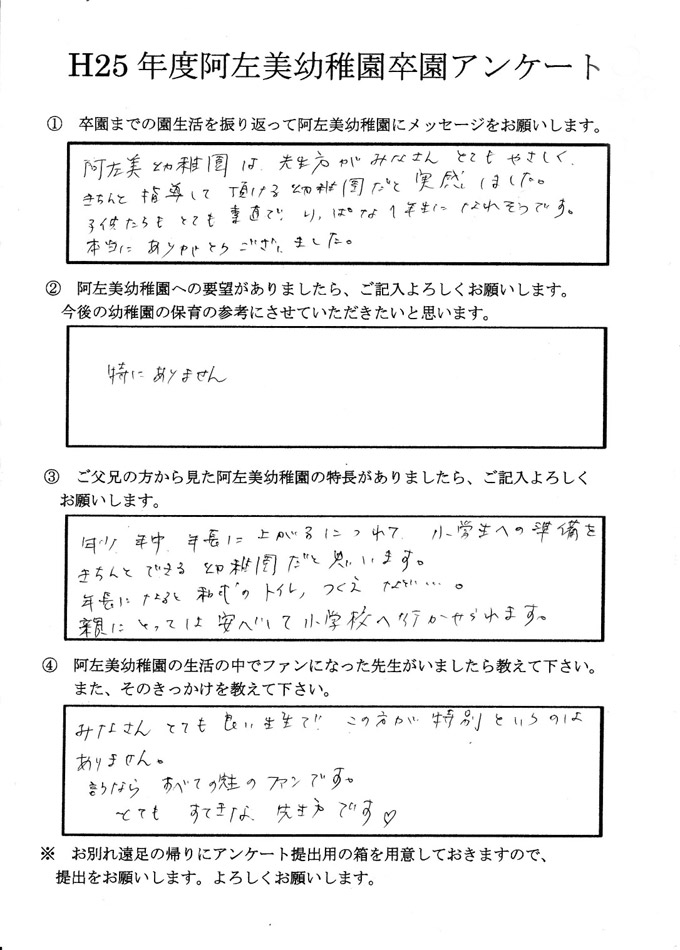 H25 年度阿左美幼稚園卒園アンケート
① 卒園までの園生活を振り返って阿左美幼稚園にメッセージをお願いします。
阿左美幼稚園は、先生方がみなさんとてもやさしく、
きちんと指導して頂ける幼稚園だと実感しました。
子供たちもとても素直で、りっぱな1年生になれそうです。
本当にありがとうございました。
② 阿左美幼稚園への要望がありましたら、ご記入よろしくお願いします。
今後の幼稚園の保育の参考にさせていただきたいと思います。
特にありません
③ ご父兄の方から見た阿左美幼稚園の特長がありましたら、ご記入よろしく
お願いします。
年少、年中、年長に上がるにつれて、小学生への準備を
きちんとできる幼稚園だと思います。
年長になると和式のトイレ、つくえ などい…。
親にとっては安心して小学校へ行かせられます。
④ 阿左美幼稚園の生活の中でファンになった先生がいましたら教えて下さい。
また、そのきっかけを教えて下さい。
みなさんとても良い先生で、この方が特別というのは
ありません。
言うなら すべての先生のファンです。
とても すてきな 先生方です♡
※ お別れ遠足の帰りにアンケート提出用の箱を用意しておきますので、
提出をお願いします。よろしくお願いします。